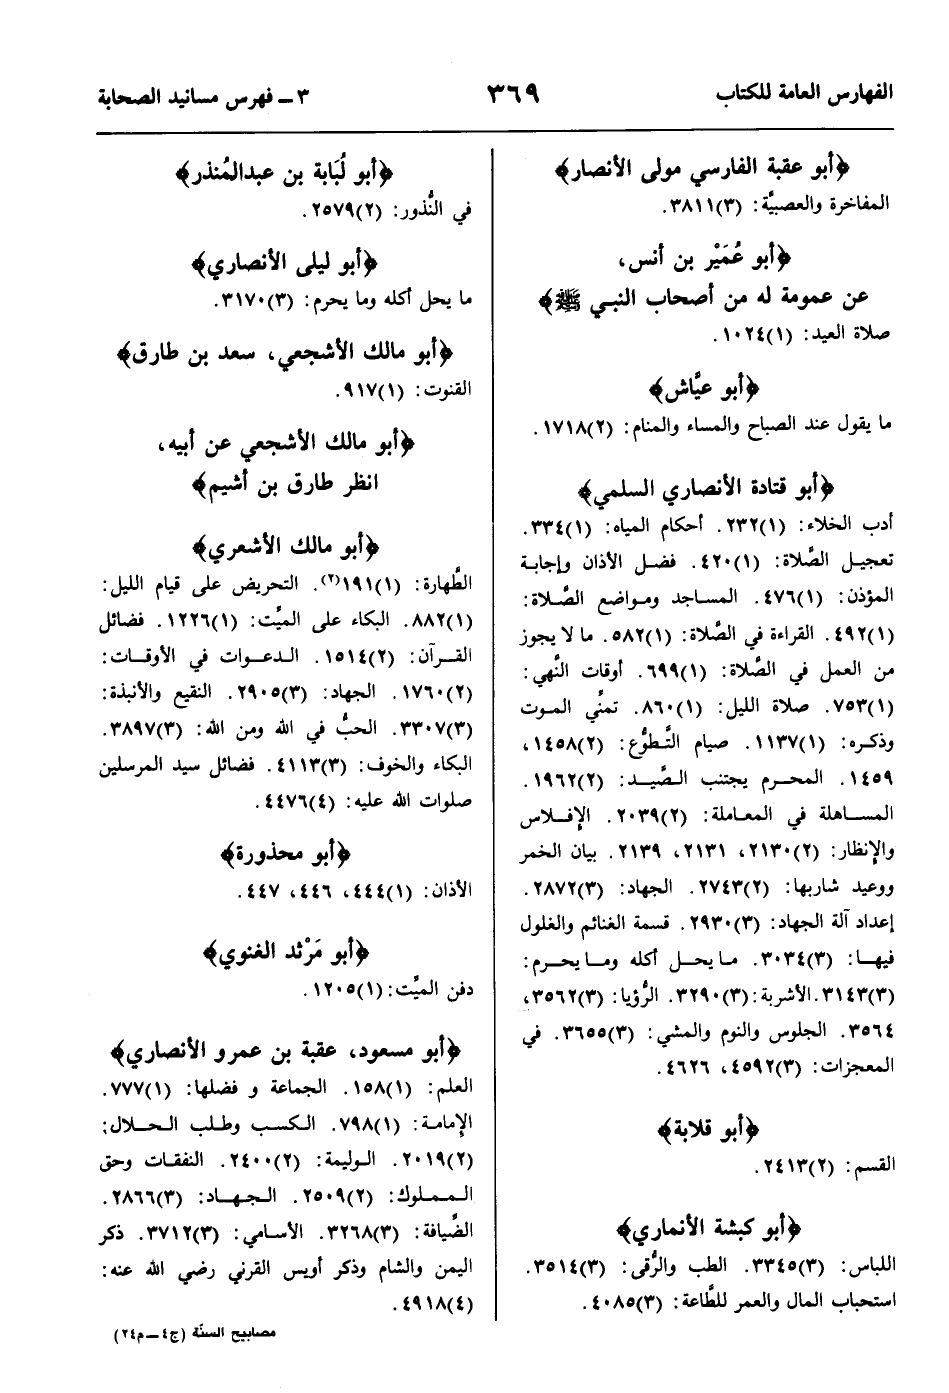 الفهارس العامة للكتاب
٣٦٩
٣ ــ فهرس مسانيد الصحابة
﴿أبو عقبة الفارسي مولى الأنصار﴾
المفاخرة والعصبيَّة: (٣)٣٨١١.
﴿أبو عُمَيْر بن أنس،
عن عمومة له من أصحاب النبي ﷺ﴾
صلاة العيد: (١)١٠٢٤.
﴿أبو عيَّاش﴾
ما يقول عند الصباح والمساء والمنام: (٢)١٧١٨.
﴿أبو قتادة الأنصاري السلمي﴾
أدب الخلاء: (١)٢٣٢. أحكام المياه: (١)٣٣٤.
تعجيل الصَّلاة: (١)٤٢٠. فضل الأذان وإجابة
المؤذن: (١)٤٧٦. المساجد ومواضع الصَّلاة:
(١)٤٩٢. القراءة في الصَّلاة: (١)٥٨٢. ما لا يجوز
من العمل في الصَّلاة: (١)٦٩٩. أوقات النَّهي:
(١)٧٥٣. صلاة الليل: (١)٨٦٠. تمنِّي الموت
وذكره: (١)١١٣٧. صيام التَّطوُّع: (٢)١٤٥٨،
١٤٥٩. المحرم يجتنب الصَّيد: (٢)١٩٦٢.
المساهلة في المعاملة: (٢)٢٠٣٩. الإفلاس
والإنظار: (٢)٢١٣٠، ٢١٣١، ٢١٣٩. بيان الخمر
ووعيد شاربها: (٢)٢٧٤٣. الجهاد: (٣)٢٨٧٢.
إعداد آلة الجهاد: (٣)٢٩٣٠. قسمة الغنائم والغلول
فيها: (٣)٣٠٣٤. ما يحل أكله وما يحرم:
(٣)٣١٤٣. الأشربة: (٣)٣٢٩٠. الرُّؤيا: (٣)٣٥٦٢،
٣٥٦٤. الجلوس والنوم والمشي: (٣)٣٦٥٥. في
المعجزات: (٣)٤٥٩٢، ٤٦٢٦.
﴿أبو قلابة﴾
القسم: (٢)٢٤١٣.
﴿أبو كبشة الأنماري﴾
اللباس: (٣)٣٣٤٥. الطب والرُّقى: (٣)٣٥١٤.
استحباب المال والعمر للطَّاعة: (٣)٤٠٨٥.
﴿أبو لُبَابة بن عبدالمُنذر﴾
في النُّذور: (٢)٢٥٧٩.
﴿أبو ليلى الأنصاري﴾
ما يحل أكله وما يحرم: (٣)٣١٧٠.
﴿أبو مالك الأشجعي، سعد بن طارق﴾
القنوت: (١)٩١٧.
﴿أبو مالك الأشجعي عن أبيه،
انظر طارق بن أشيم﴾
﴿أبو مالك الأشعري﴾
الطَّهارة: (١)١٩١(٢). التحريض على قيام الليل:
(١)٨٨٢. البكاء على الميِّت: (١)١٢٢٦. فضائل
القرآن: (٢)١٥١٤. الدعوات في الأوقات:
(٢)١٧٦٠. الجهاد: (٣)٢٩٠٥. النقيع والأنبذة:
(٣)٣٣٠٧. الحبُّ في الله ومن الله: (٣)٣٨٩٧.
البكاء والخوف: (٣)٤١١٣. فضائل سيد المرسلين
صلوات الله عليه: (٤)٤٤٧٦.
﴿أبو محذورة﴾
الأذان: (١)٤٤٤، ٤٤٦، ٤٤٧.
﴿أبو مَرْثد الغنوي﴾
دفن الميِّت: (١)١٢٠٥.
﴿أبو مسعود، عقبة بن عمرو الأنصاري﴾
العلم: (١)١٥٨. الجماعة و فضلها: (١)٧٧٧.
الإمامة: (١)٧٩٨. الكسب وطلب الحلال:
(٢)٢٠١٩. الوليمة: (٢)٢٤٠٠. النفقات وحق
المملوك: (٢)٢٥٠٩. الجهاد: (٣)٢٨٦٦.
الضِّيافة: (٣)٣٢٦٨. الأسامي: (٣)٣٧١٢. ذكر
اليمن والشام وذكر أويس القرني رضي الله عنه:
(٤)٤٩١٨.
مصابيح السنّة (ج٤ــ م٢٤)